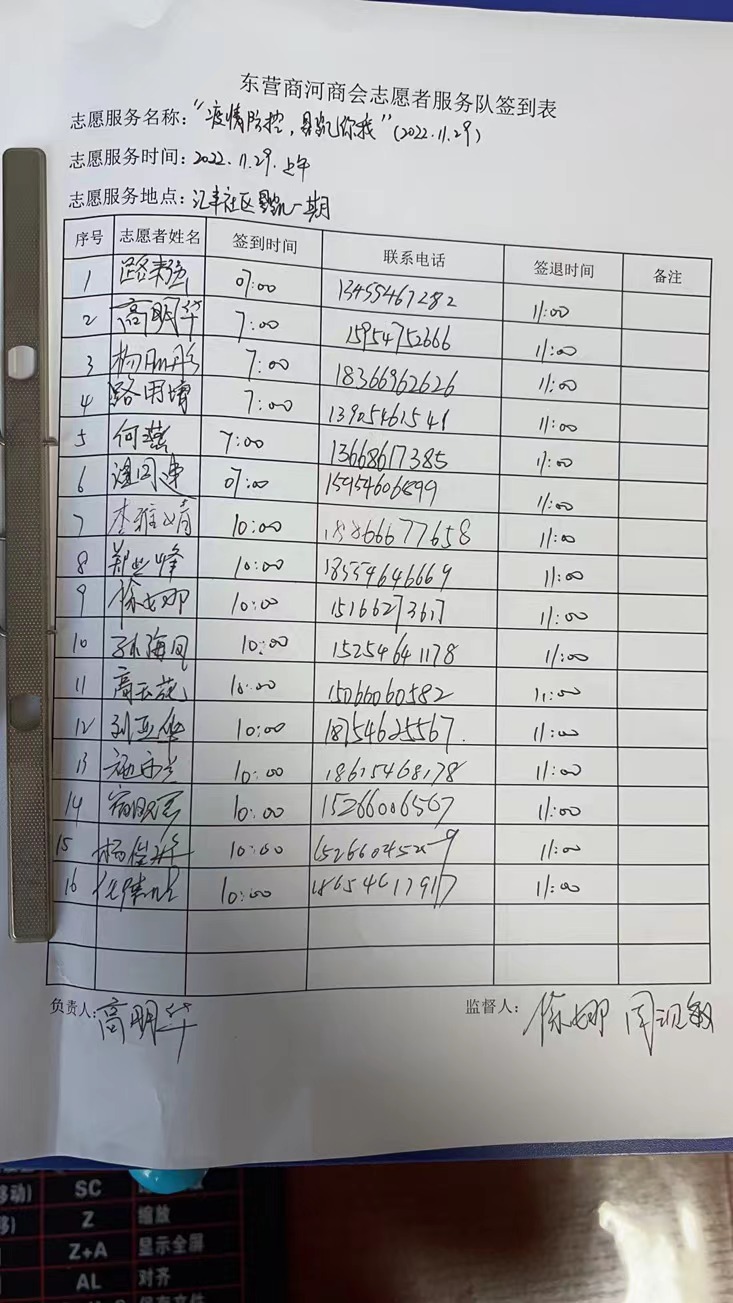 东营商河商会志愿者服务队签到表
志愿服务名称："疫情防控，你我"(2022.11.29)
志愿服务时间：2022.11.29.上午
志愿服务地点：汇丰社区一期
序号 志愿者姓名 签到时间 联系电话 签退时间 备注
1 07:00 13455467282 11:00
2 高明华 7:00 15954752666 11:00
3 杨丽彤 7:00 18366962626 11:00
4 路用增 7:00 13905461541 11:00
5 何燕 7:00 13668617385 11:00
6 07:00 11:00
7 李雅靖 10:00 18866677658 11:00
8 郑峰 10:00 18554646669 11:00
9 徐娜 10:00 15166273617 11:00
10 孙海 10:00 15254641178 11:00
11 高玉花 10:00 15066060582 11:00
12 刘亚华 10:00 18754625567 11:00
13 10:00 18615468178 11:00
14 10:00 15266006567 11:00
15 杨 10:00 11:00
16 10:00 18654617917 11:00
负责人：高明华 监督人：徐娜 周敏
移动)
SC
Z 缩放
Z+A 显示全屏
AL 对齐
保存文件